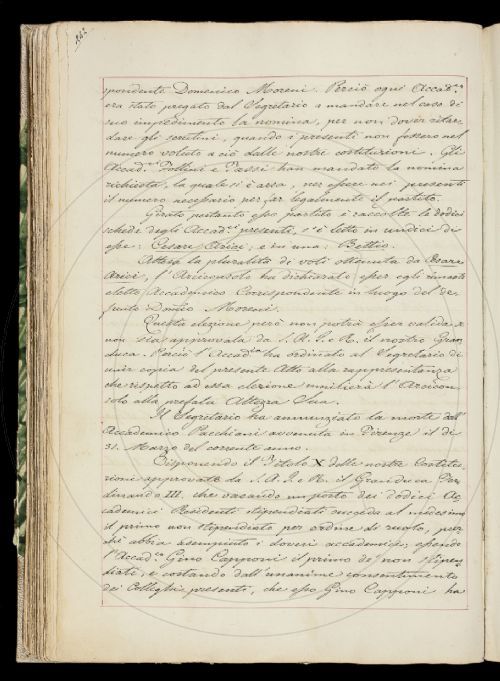 spondente Domenico Moreni. Perciò ogni Accad.co
era stato pregato dal Segretario a mandare nel caso di
suo impedimento la nomina, per non dover ritar-
dare gli scrutini, quando i presenti non fossero nel
numero voluto a ciò dalle nostre costituzioni. Gli
Accad.ci Follini e Tassi han mandato la nomina
richiesta, la quale si è arsa, per essere nei presenti
il numero necessario per far legalmente il partito.
Girato pertanto esso partito e raccolte le dodici
schede degli Accad.ci presenti, s'è letto in undici di
esse: Cesare Arici, e in una: Bettio.
Attesa la pluralità di voti ottenuta da Cesare
Arici, l'Arciconsolo ha dichiarato esser egli rimasto
eletto Accademico Corrispondente in luogo del de-
funto Dom.co Moreni.
Questa elezione però non potrà esser valida se
non sia approvata da S. A. I. e R. il nostro Gran-
duca. Perciò l'Accad.ia ha ordinato al Segretario di
unir copia del presente Atto alla rappresentanza
che rispetto ad essa elezione umilierà l'Arcicon-
solo alla prefata Altezza Sua.
Il Segretario ha annunziato la morte dell'
Accademico Pacchiani avvenuta in Firenze il dì
31. Marzo del corrente anno.
Disponendo il Titolo X delle nostre Costitu-
zioni approvate da S. A. I. e R. il Granduca Fer-
dinando III. che vacando un posto dei dodici Ac-
cademici Residenti stipendiati succeda al medesimo
il primo non stipendiato per ordine di ruolo, pur-
chè abbia adempiuto i doveri accademici; essendo
l'Accad.co Gino Capponi il primo de' non stipen-
diati, e costando dall'unanime consentimento
dei Colleghi presenti, che esso Gino Capponi ha